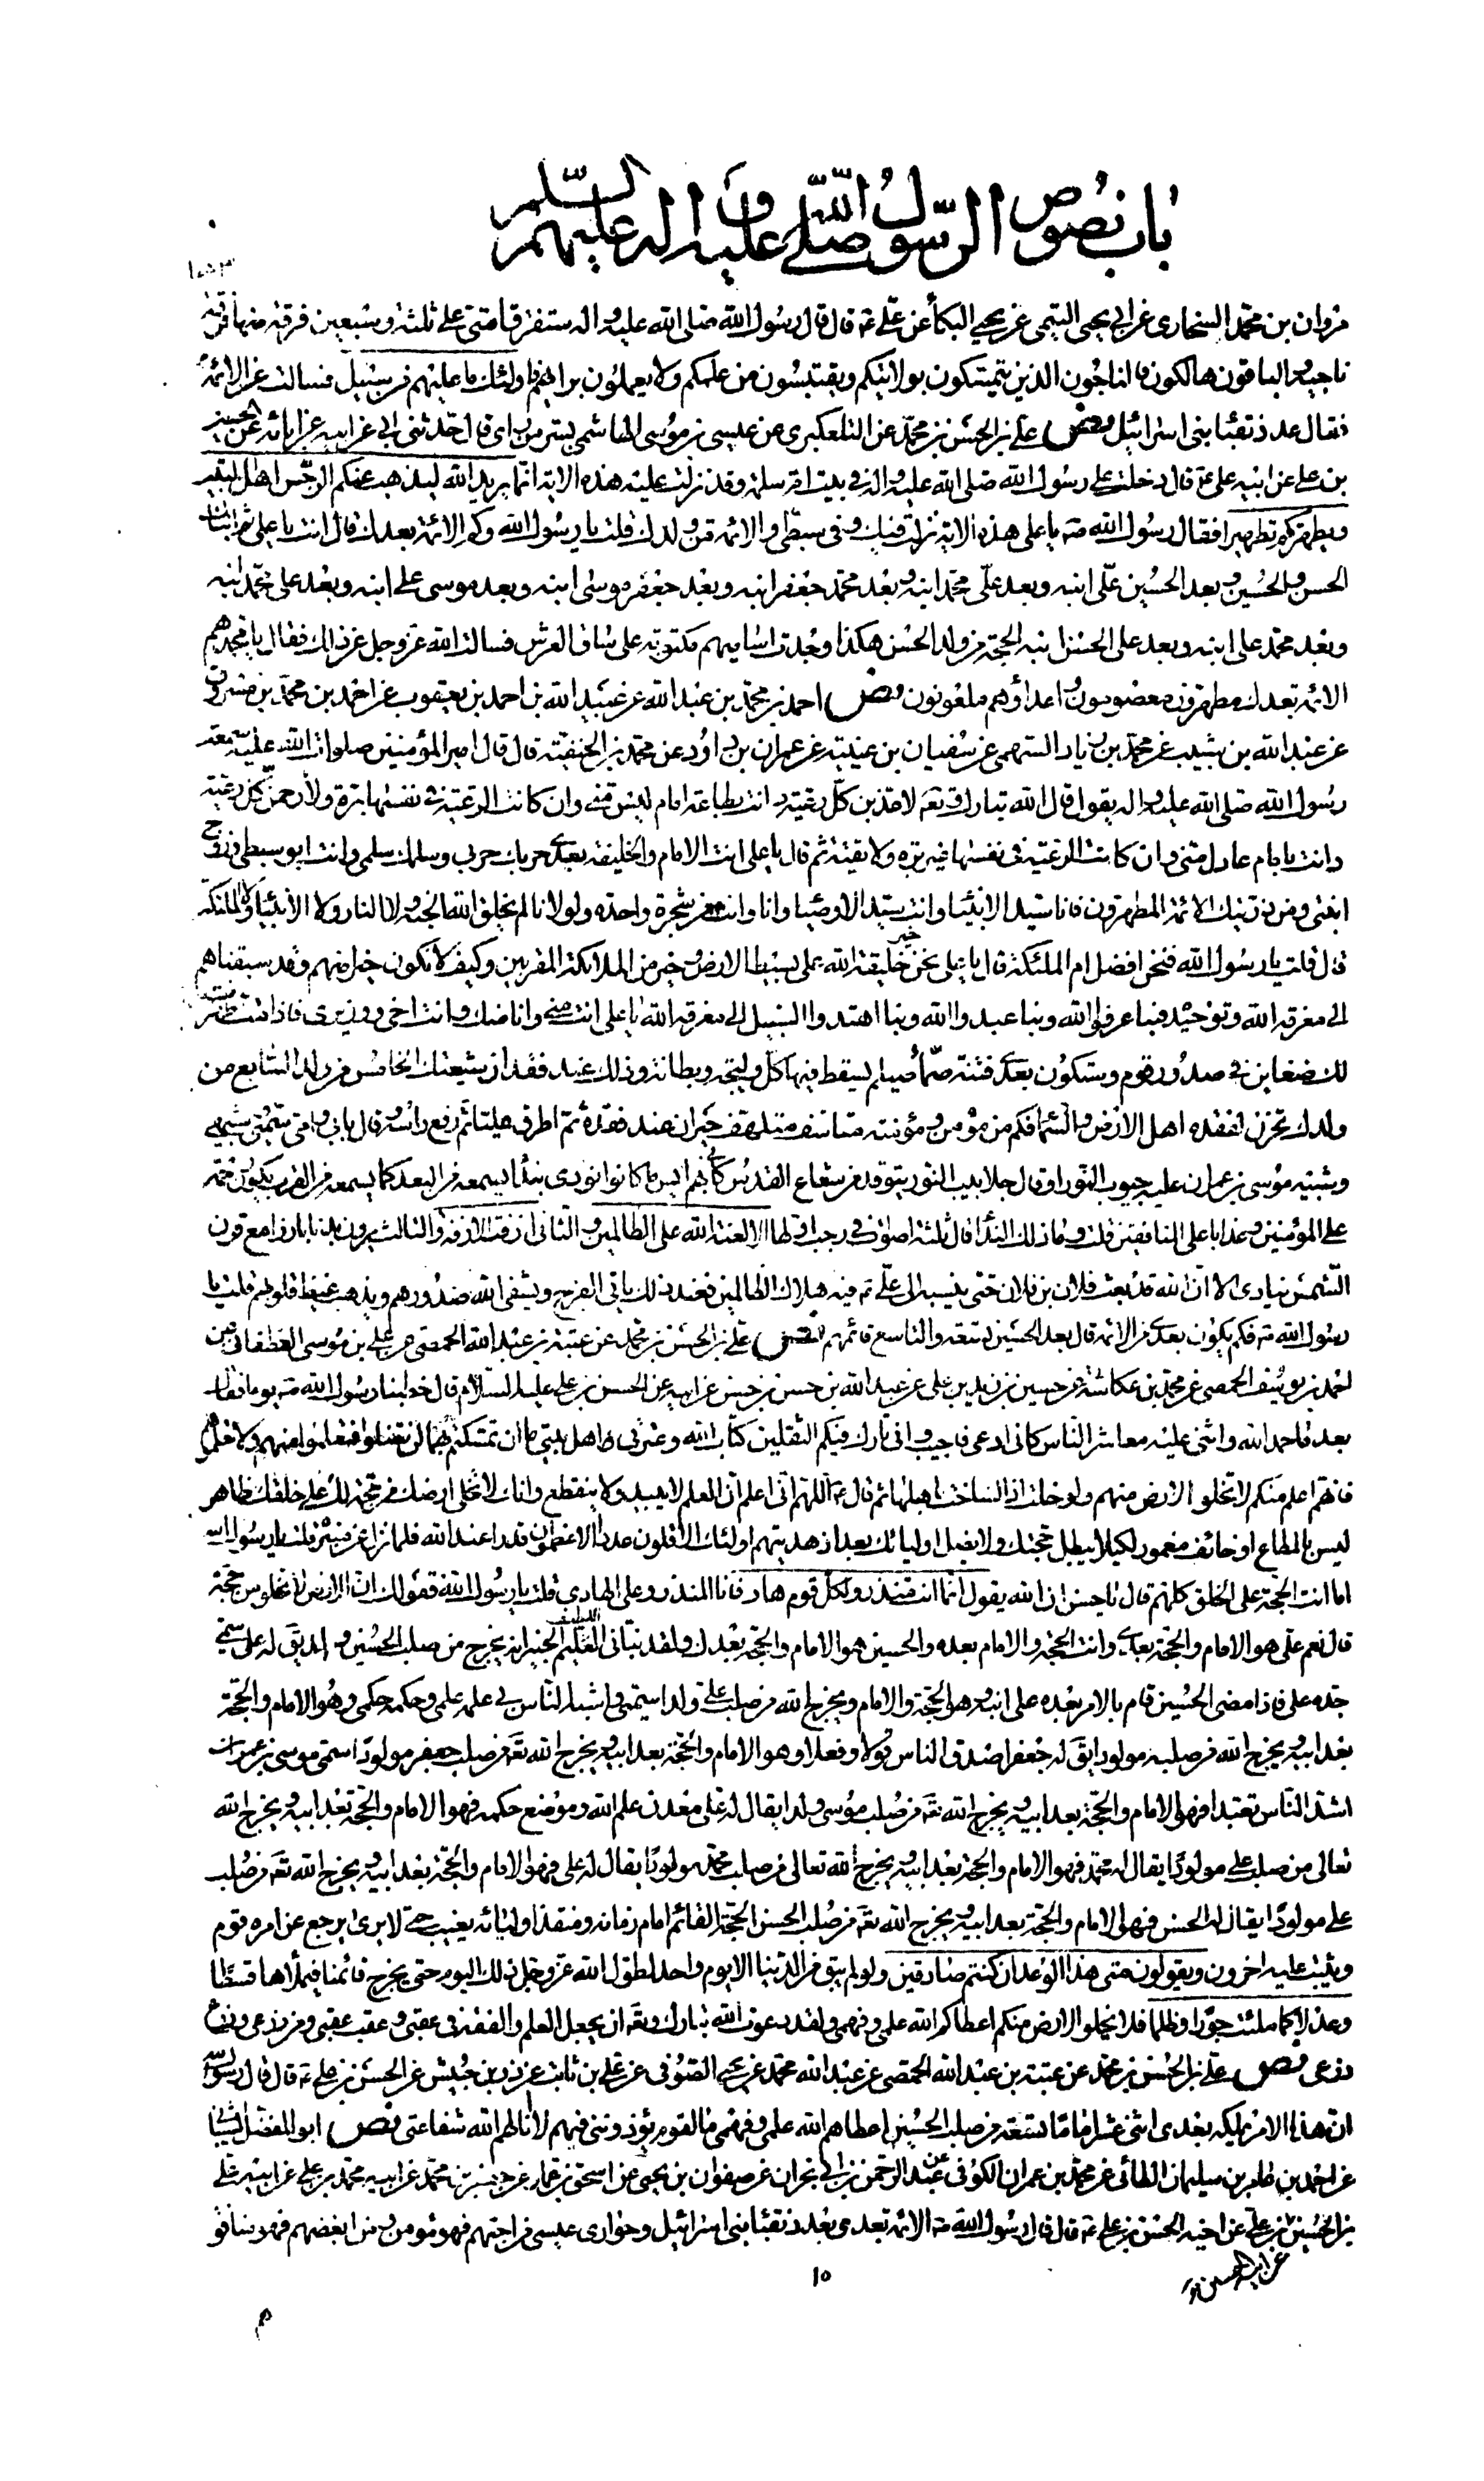 باب نصوص الرسول صلى الله عليه وآله عليهم السلم
مروان بن محمد السنجاري عن ابي يحيى التيمي عن يحيى البكاء عن علي ع قال قال رسول الله صلى الله عليه واله ستفترق امتي على ثلثة وسبعين فرقة منها فرقة
ناجية والباقون هالكون فالناجون الذين يتمسكون بولايتكم ويقتبسون من علمكم ولا يعملون برايهم فاولئك ما عليهم من سبيل فسالت عن الائمة
فقال عدد نقباء بني اسرائيل نص علي بن الحسن بن محمد عن التلعكبري عن عيسى بن موسى الهاشمي بسر من راي قال حدثني ابي عن ابيه عن ابائه عن الحسين
بن علي عن ابيه علي ع قال دخلت على رسول الله صلى الله عليه واله في بيت ام سلمة وقد نزلت عليه هذه الاية انما يريد الله ليذهب عنكم الرجس اهل البيت
ويطهركم تطهيرا فقال رسول الله صه يا علي هذه الاية نزلت فيك وفي سبطي والائمة من ولدك قلت يا رسول الله وكم الائمة بعدك قال انت يا علي ثم ابناك
الحسن والحسين وبعد الحسين علي ابنه وبعد علي محمد ابنه وبعد محمد جعفر ابنه وبعد جعفر موسى ابنه وبعد موسى علي ابنه وبعد علي محمد ابنه
وبعد محمد علي ابنه وبعد علي الحسن ابنه الحجة من ولد الحسن هكذا وجدت اساميهم مكتوبة على ساق العرش فسالت الله عز وجل عن ذلك فقال يا محمد هم
الائمة بعدك مطهرون معصومون واعداؤهم ملعونون نص احمد بن محمد بن عبد الله عن عبيد الله بن احمد بن يعقوب عن احمد بن محمد بن مسروق
عن عبد الله بن شبيب عن محمد بن زياد السهمي عن سفيان بن عيينة عن عمران بن داود عن محمد بن الحنفية قال قال امير المؤمنين صلوات الله عليه سمعت
رسول الله صلى الله عليه واله يقول قال الله تبارك وتعه لاعذبن كل رعية دانت بطاعة امام ليس مني وان كانت الرعية في نفسها برة ولارحمن كل رعية
دانت بامام عادل مني وان كانت الرعية في نفسها غير برة ولا تقية ثم قال يا علي انت الامام والخليفة بعدي حربك حربي وسلمك سلمي وانت ابو سبطي وزوج
ابنتي ومن ذريتك الائمة المطهرون فانا سيد الانبياء وانت سيد الاوصياء وانا وانت من شجرة واحدة ولولانا لم يخلق الله الجنة ولا النار ولا الانبياء ولا الملئكة
قال قلت يا رسول الله فنحن افضل ام الملئكة قال يا علي نحن خير خليقة الله على بسيط الارض وخير من الملائكة المقربين وكيف لا نكون خيرا منهم وقد سبقناهم
الى معرفة الله وتوحيده فبنا عرفوا الله وبنا عبدوا الله وبنا اهتدوا السبيل الى معرفة الله يا علي انت مني وانا منك وانت اخي ووزيري فاذا مت ظهرت
لك ضغاين في صدور قوم وستكون بعدي فتنة صماء صيلم يسقط فيها كل وليجة وبطانة وذلك عند فقدان شيعتك الخامس من ولد السابع من
ولدك تحزن لفقده اهل الارض والسماء فكم من مؤمن ومؤمنة متاسف متلهف حيران عند فقده ثم اطرق مليا ثم رفع راسه وقال بابي وامي سميي وشبيهي
وشبيه موسى بن عمران عليه جيوب النور او قال جلابيب النور يتوقد من شعاع القدس كاني بهم ايس ما كانوا نودي بنداء يسمعه من البعد كما يسمعه من القرب يكون رحمة
على المؤمنين وعذابا على المنافقين قلت وما ذلك النداء قال ثلثة اصوات في رجب اولها الا لعنة الله على الظالمين والثاني ازفت الازفة والثالث يرون بدنا بارزا مع قرن
الشمس ينادي الا ان الله قد بعث فلان بن فلان حتى ينسبه الى علي ع فيه هلاك الظالمين فعند ذلك ياتي الفرج ويشفي الله صدورهم ويذهب غيظ قلوبهم قلت يا
رسول الله صه فكم يكون بعدي من الائمة قال بعد الحسين تسعة والتاسع قائمهم نص علي بن الحسن بن محمد عن عتبة بن عبد الله الحمصي عن علي بن موسى الغطفاني عن
احمد بن يوسف الحمصي عن محمد بن عكاشة عن حسين بن زيد بن علي عن عبد الله بن حسن بن حسن عن ابيه عن الحسن بن علي عليه السلام قال خطبنا رسول الله صه يوما فقال
بعد ما حمد الله واثنى عليه معاشر الناس كاني ادعى فاجيب واني تارك فيكم الثقلين كتاب الله وعترتي اهل بيتي ما ان تمسكتم بهما لن تضلوا فتعلموا منهم ولا تعلموهم
فانهم اعلم منكم لا تخلو الارض منهم ولو خلت اذا لساخت باهلها ثم قال ع اللهم اني اعلم ان العلم لا يبيد ولا ينقطع وانك لا تخلي ارضك من حجة لك على خلقك ظاهر
ليس بالمطاع او خائف مغمور لكيلا يبطل حجتك ولا يضل اوليائك بعد اذ هديتهم اولئك الاقلون عددا الاعظمون قدرا عند الله فلما نزل عن منبره قلت يا رسول الله
اما انت الحجة على الخلق كلهم قال يا حسن ان الله يقول انما انت منذر ولكل قوم هاد فانا المنذر وعلي الهادي قلت يا رسول الله فقولك ان الارض لا تخلو من حجة
قال نعم علي هو الامام والحجة بعدي وانت الحجة والامام بعده والحسين هو الامام والحجة بعدك ولقد نباني اللطيف الخبير انه يخرج من صلب الحسين ولد يق له علي سمي
جده علي فاذا مضى الحسين قام بالامر بعده علي ابنه وهو الحجة والامام ويخرج الله من صلب علي ولدا سميي واشبه الناس بي علمه علمي وحكمه حكمي وهو الامام والحجة
بعد ابيه ويخرج الله من صلبه مولودا يق له جعفر اصدق الناس قولا وفعلا وهو الامام والحجة بعد ابيه ويخرج الله تعه من صلب جعفر مولودا سمي موسى بن عمران
اشد الناس تعبدا فهو الامام والحجة بعد ابيه ويخرج الله تعه من صلب موسى ولدا يقال له علي معدن علم الله وموضع حكمه فهو الامام والحجة بعد ابيه ويخرج الله
تعالى من صلب علي مولودا يقال له محمد فهو الامام والحجة بعد ابيه ويخرج الله تعالى من صلب محمد مولودا يقال له علي فهو الامام والحجة بعد ابيه ويخرج الله تعه من صلب
علي مولودا يقال له الحسن فهو الامام والحجة بعد ابيه ويخرج الله تعه من صلب الحسن الحجة القائم امام زمانه ومنقذ اوليائه يغيب حتى لا يرى يرجع عن امره قوم
ويثبت عليه اخرون ويقولون متى هذا الوعد ان كنتم صادقين ولو لم يبق من الدنيا الا يوم واحد لطول الله عز وجل ذلك اليوم حتى يخرج قائمنا فيملاها قسطا
وعدلا كما ملئت جورا وظلما فلا يخلو الارض منكم اعطاكم الله علمي وفهمي ولقد دعوت الله تبارك وتعه ان يجعل العلم والفقه في عقبي وعقب عقبي ومن زرعي وزرع
زرعي نص علي بن الحسن بن محمد عن عتبة بن عبد الله الحمصي عن عبد الله محمد عن يحيى الصوفي عن علي بن ثابت عن زر بن حبيش عن الحسن بن علي ع قال قال رسول الله
ان هذا الامر يملكه بعدي اثني عشر اماما تسعة من صلب الحسين اعطاهم الله علمي وفهمي ما لقوم يؤذونني فيهم لا انالهم الله شفاعتي نص ابو المفضل الشيباني
عن احمد بن طاهر بن سليمان الطائي عن محمد بن عمران الكوفي عن عبد الرحمن بن ابي نجران عن صفوان بن يحيى عن اسحق بن عمار عن جعفر بن محمد عن ابيه محمد بن علي عن ابيه علي
بن الحسين بن علي عن اخيه الحسن بن علي ع قال قال رسول الله صه الائمة بعدي بعدد نقباء بني اسرائيل وحواري عيسى من احبهم فهو مؤمن ومن ابغضهم فهو منافق
عن ابيه الحسين
١٥